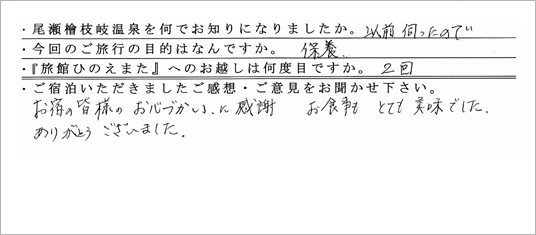 ・尾瀬檜枝岐温泉を何でお知りになりましたか。以前伺ったので
・今回のご旅行の目的はなんですか。 保養.
・『旅館ひのえまた』へのお越しは何度目ですか。 2回
・ご宿泊いただきましたご感想・ご意見をお聞かせ下さい。
お宿の皆様の お心づかい、に感謝 お食事も とても 美味でした.
ありがとう ございました.